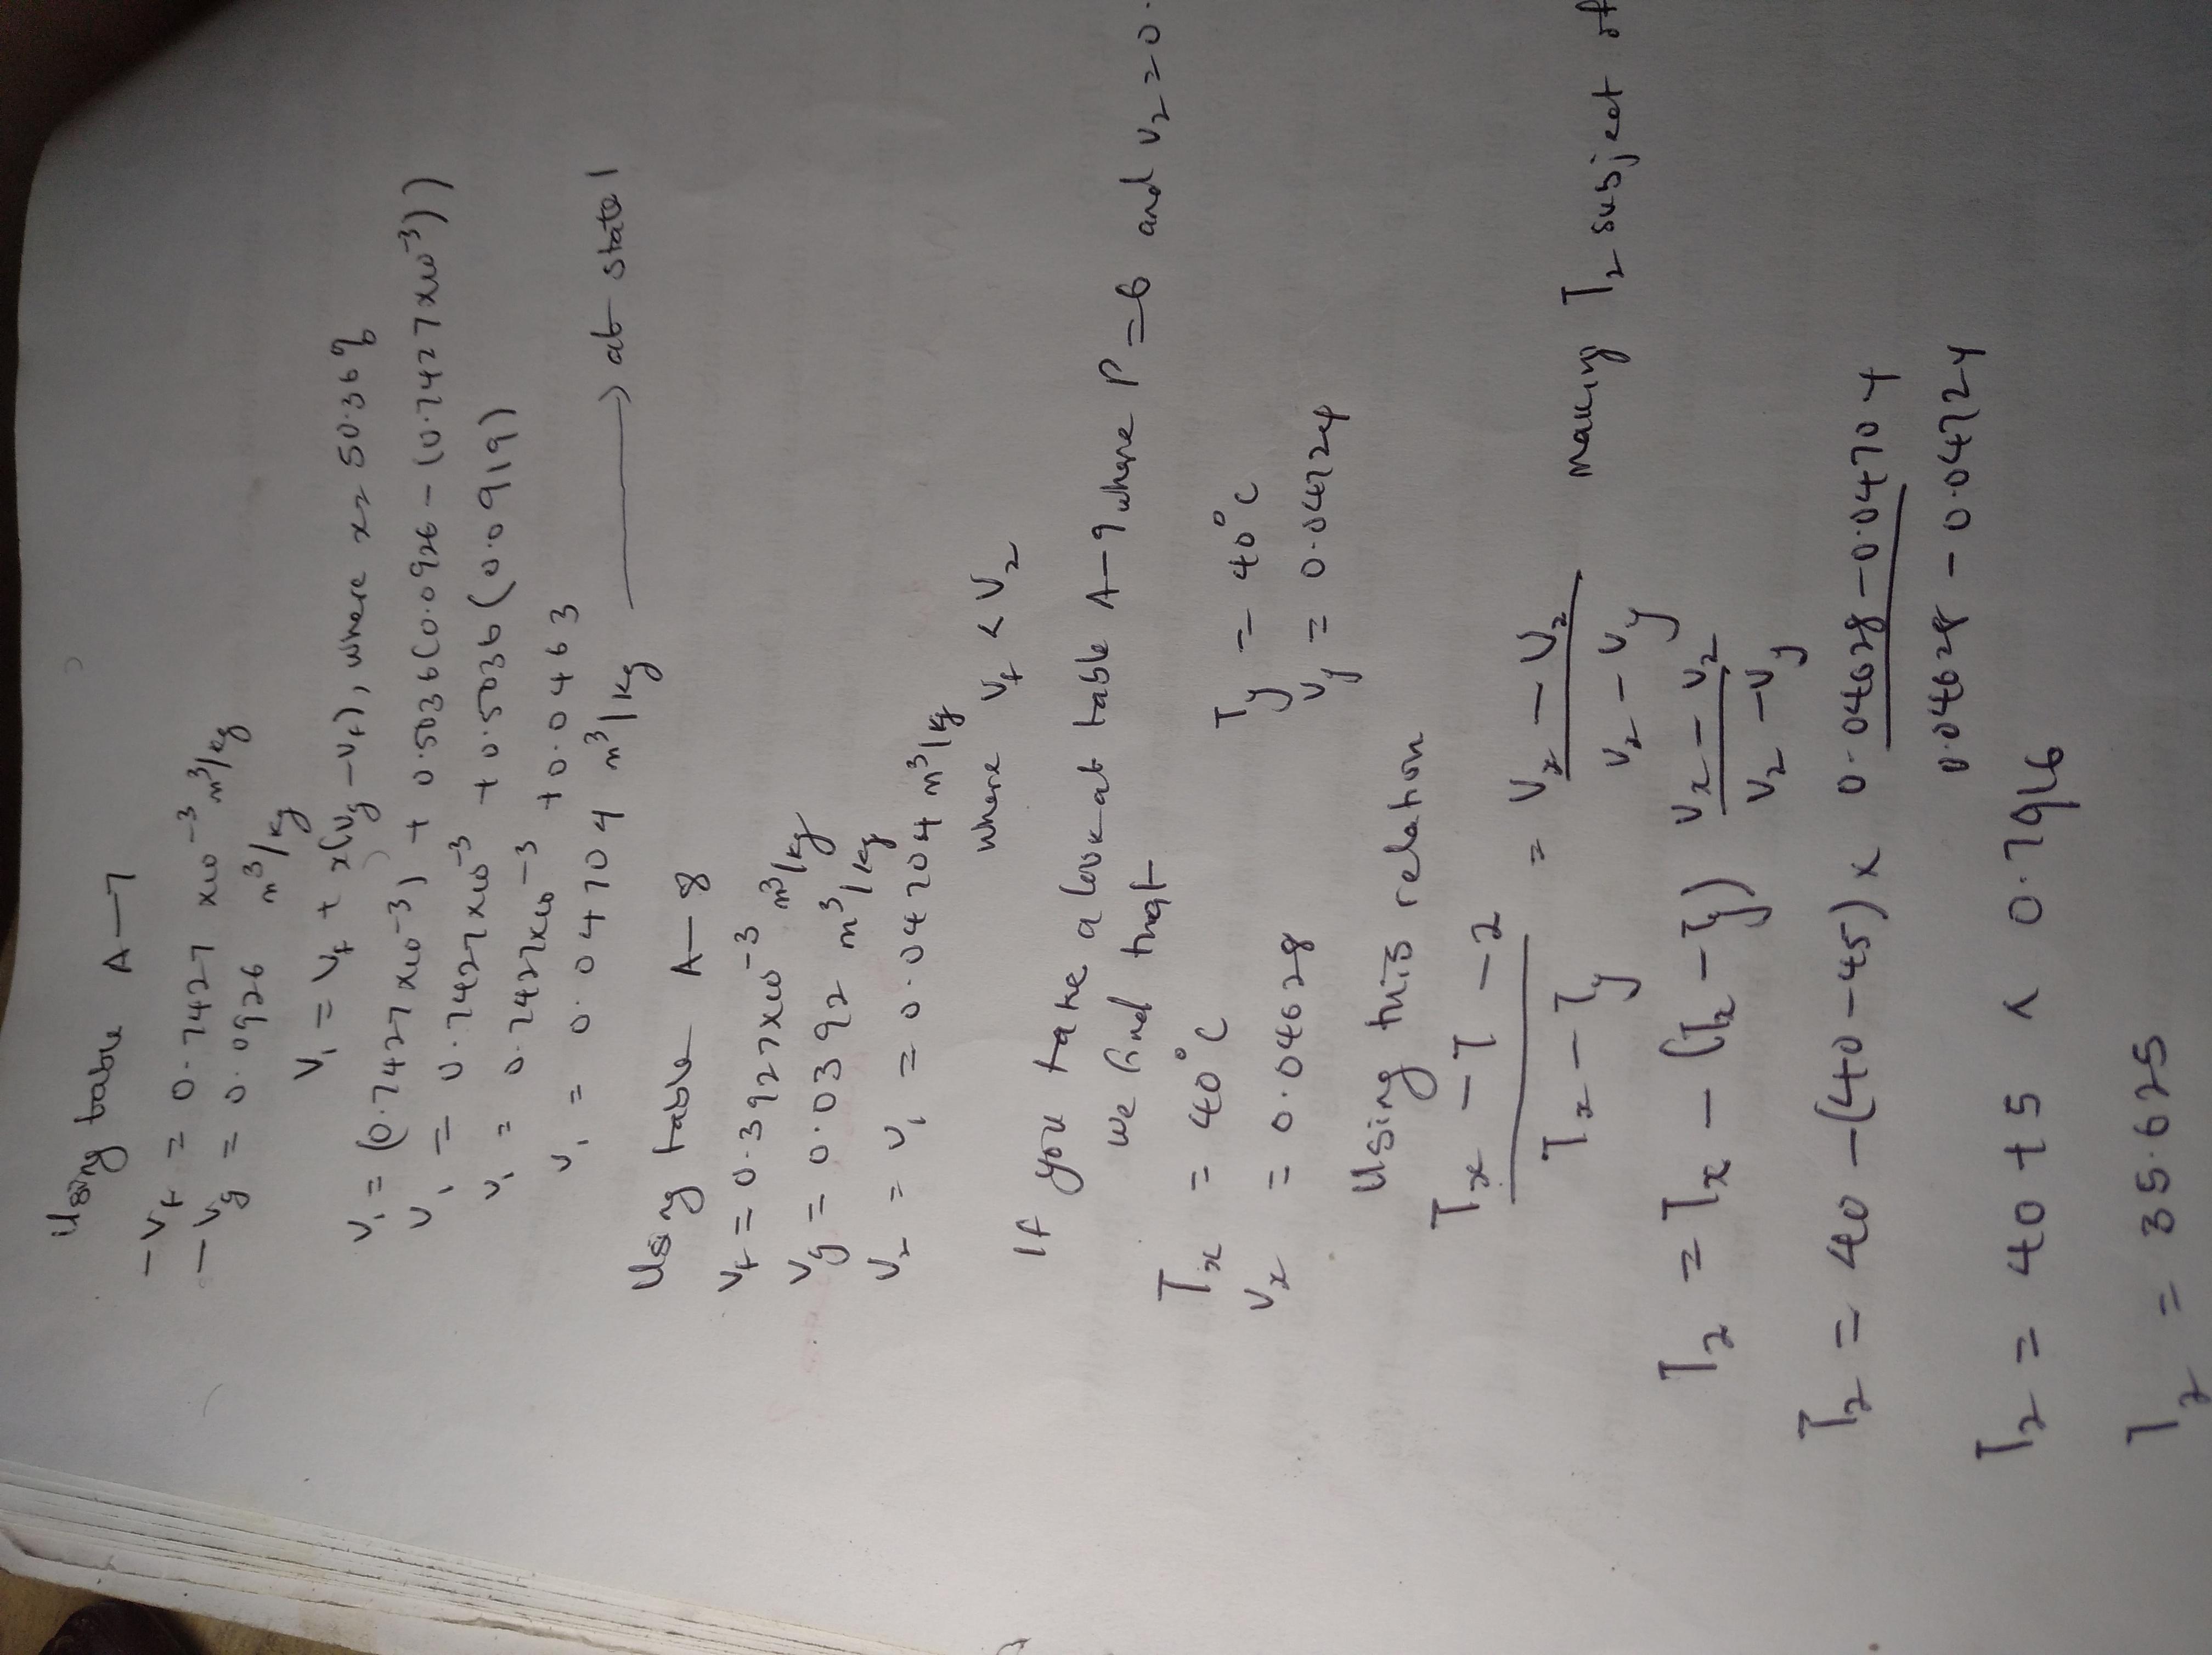 Using table A-7
- Vf = 0.7427 x10⁻³ m³/kg
- Vg = 0.0926 m³/kg
V₁ = Vf + x(Vg - Vf), where x = 50.36%
V₁ = (0.7427 x10⁻³) + 0.5036(0.0926 - (0.7427 x10⁻³))
V₁ = 0.7427x10⁻³ + 0.5036(0.0919)
V₁ = 0.7427x10⁻³ + 0.0463
V₁ = 0.04704 m³/kg → at state 1
Using table A-8
Vf = 0.3927x10⁻³ m³/kg
Vg = 0.0392 m³/kg
V₂ = V₁ = 0.04704 m³/kg
where Vf < V₂
If you take a look at table A-9 where P = 6 and V₂ = 0.
we find that
Tx = 40°C Ty = 40°C
Vx = 0.04628 Vy = 0.04724
Using this relation
Tx - T - 2 / Tx - Ty = Vx - V₂ / Vx - Vy making T₂ subject of
T₂ = Tx - (Tx - Ty) Vx - V₂ / Vx - Vy
T₂ = 40 - (40 - 45) x 0.04628 - 0.04704 / 0.04628 - 0.04724
T₂ = 40 + 5 x 0.7916
T₂ = 35.625